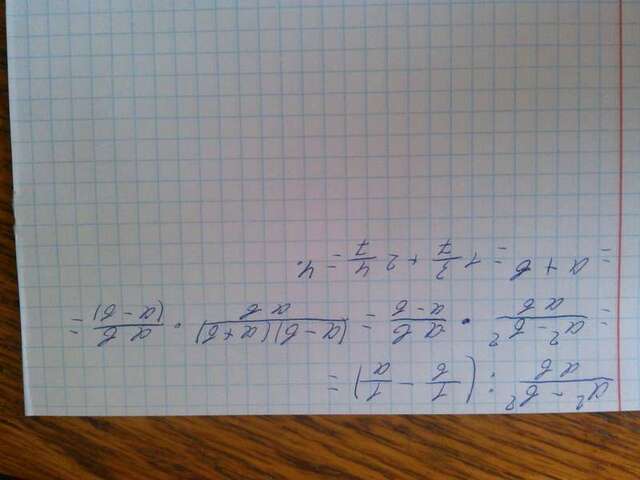 (a² - b²)/(ab) : (1/b - 1/a) =
= (a² - b²)/(ab) · (ab)/(a - b) = ((a - b)(a + b))/(ab) · (ab)/((a - b)) =
= a + b = 1 3/7 + 2 4/7 = 4.